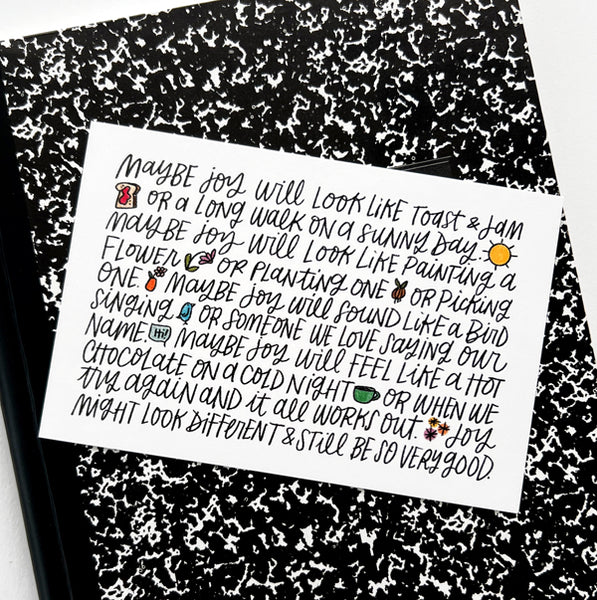 MAYBE JOY WILL LOOK LIKE TOAST & JAM
OR A LONG WALK ON A SUNNY DAY.
MAYBE JOY WILL LOOK LIKE PAINTING A
FLOWER OR PLANTING ONE OR PICKING
ONE. MAYBE JOY WILL SOUND LIKE A BIRD
SINGING OR SOMEONE WE LOVE SAYING OUR
NAME. Hi! MAYBE JOY WILL FEEL LIKE A HOT
CHOCOLATE ON A COLD NIGHT OR WHEN WE
TRY AGAIN AND IT ALL WORKS OUT. JOY
MIGHT LOOK DIFFERENT & STILL BE SO VERY GOOD.